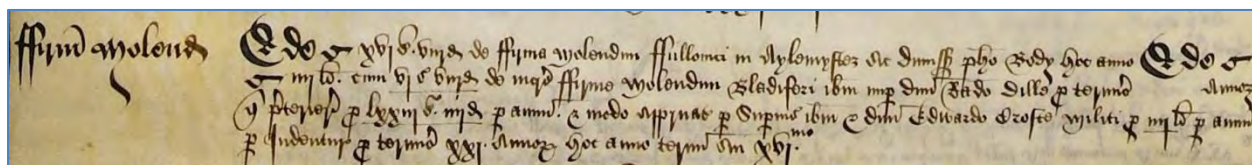 ffirm molend Et de xvi s. viij d de ffirma molendini ffullonici in Aylemyster sic dimiss Joho Body hoc anno Et de
iiij li. cum vj s viij d de incr ffirme molendini Bladifori ibm nup dim Ricardo Dille p termino Annor
p lxxiij s. iiij d p annum & modo appruat p Supuis ibm & dim Edwardo Crofte militi p iiij li. p annum
p Indentur p termino xxj Annor hoc anno termi sui xvj mo